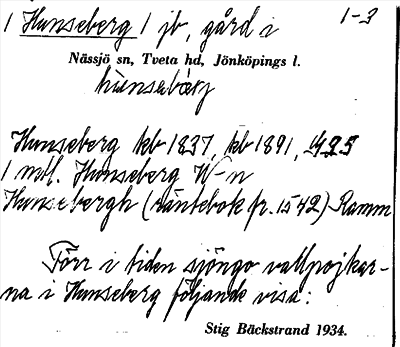 1 Hunseberg 1 jb, gård i 1-3
Nässjö sn, Tveta hd, Jönköpings l.
hünsəbærj
Hunseberg kb 1837, kb 1891,
1 mtl. Hunseberg
Hunsebergh (räntebok fr. 1542) Ramm
Förr i tiden sjöngo vallpojkar-
na i Hunseberg följande visa:
Stig Bäckstrand 1934.